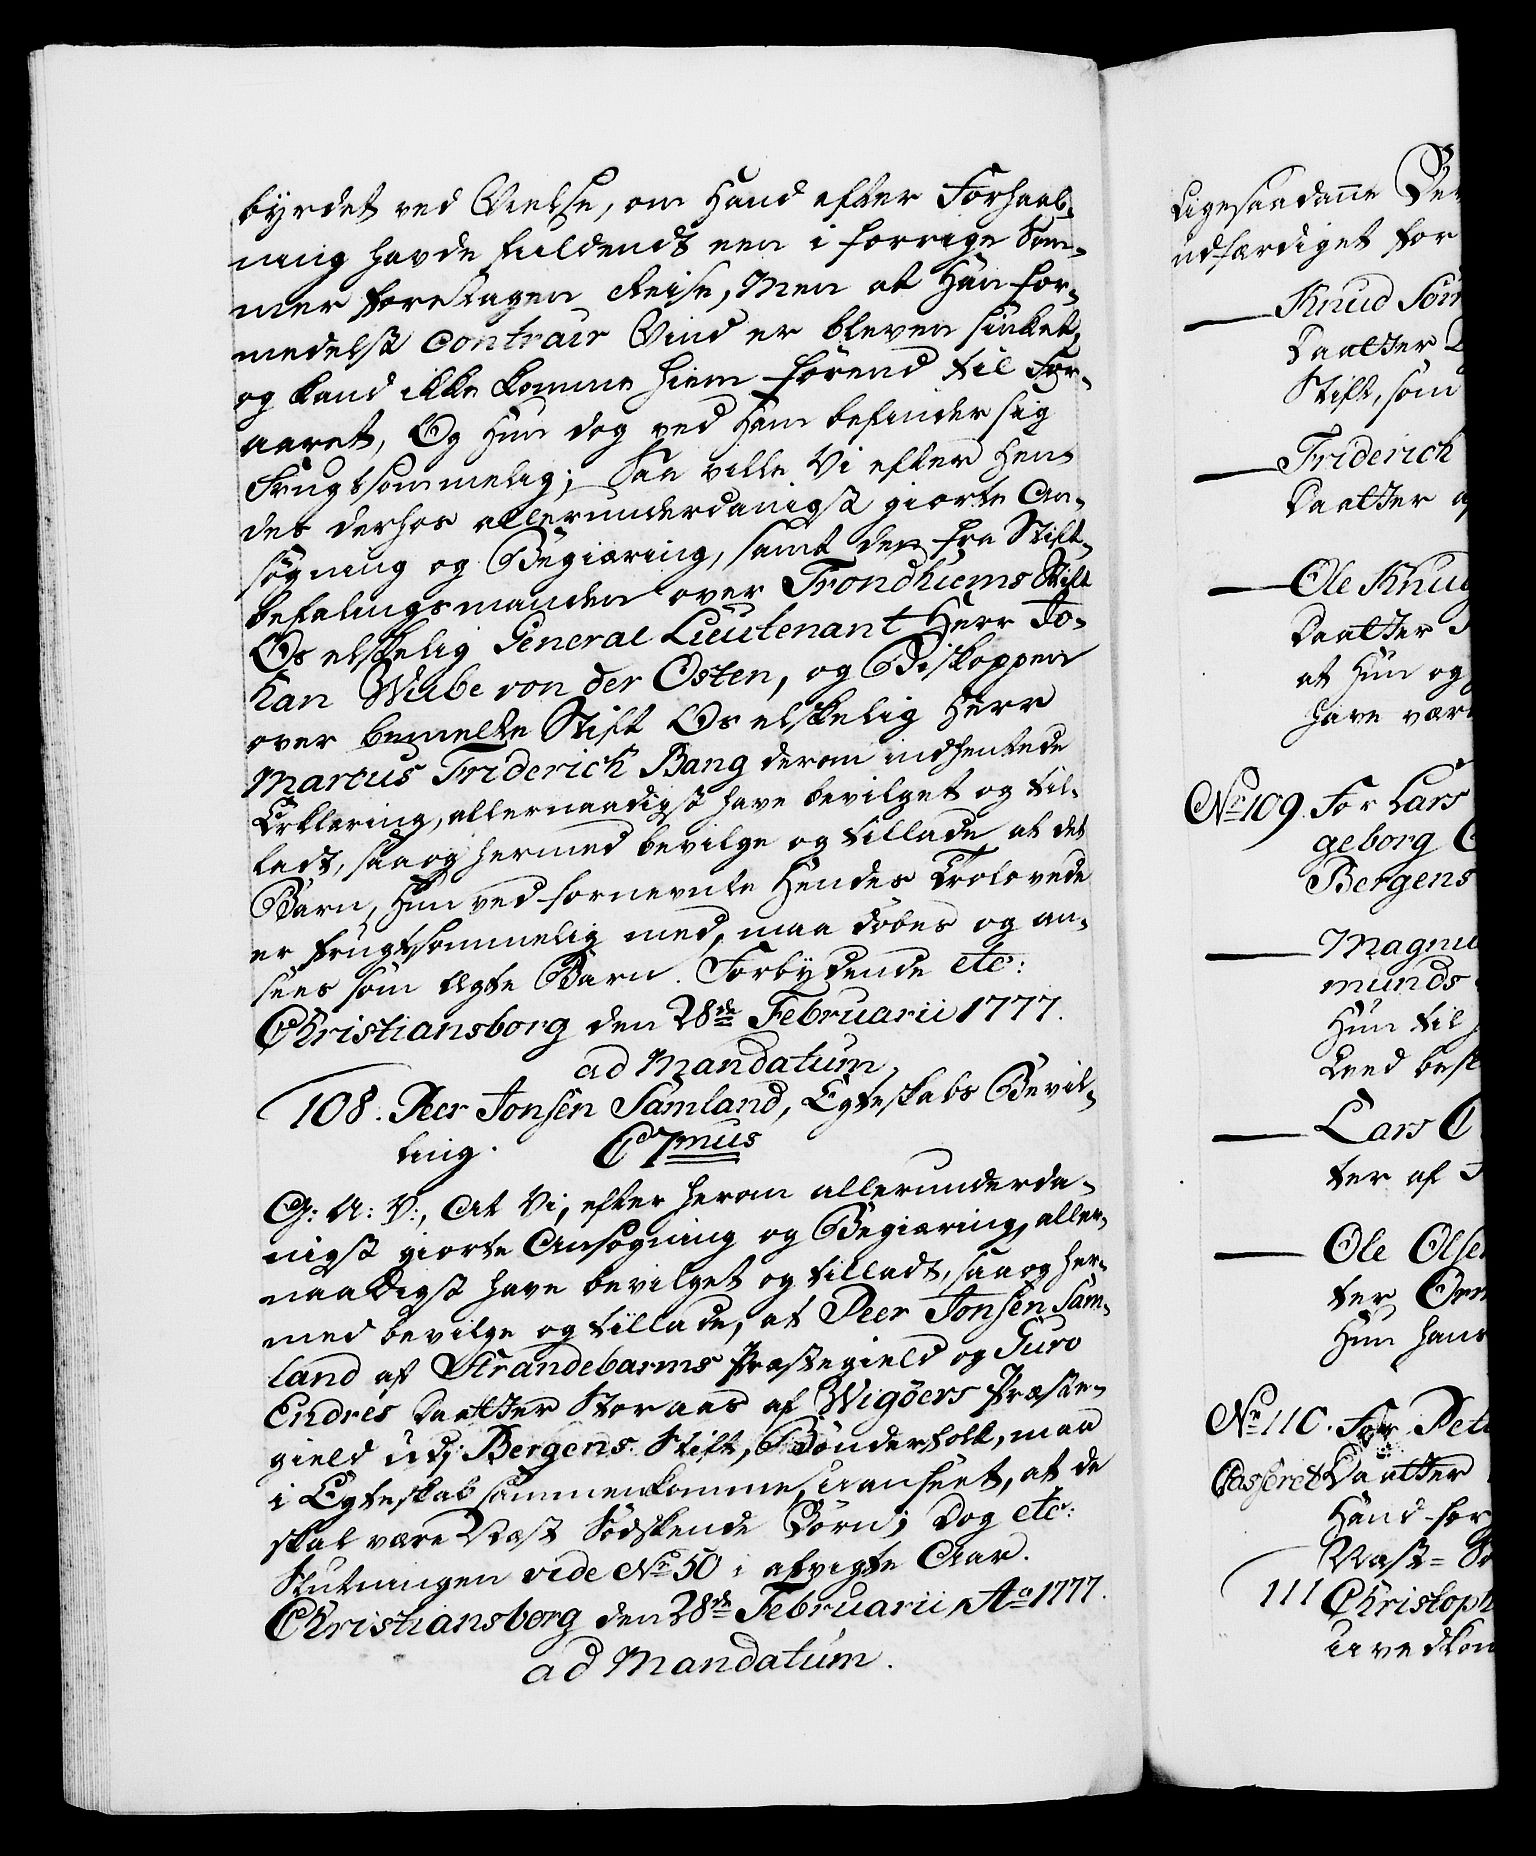 byrdet ved Vielse, om Hand efter Forhaab-
ning havde fuldendt een i forrige Som-
mer foretagen Reise, Men at Han for-
medelst contrair Vind er bleven sinket,
og kand ikke komme hiem førend til For-
aaret, Og Hun dog ved Ham befinder sig
frugtsommelig; Saa ville Vi efter Hen-
des derhos allerunderdanigst giorte An-
søgning og Begiæring, samt den fra Stift-
befalingsmanden over Trondhiems Stift
Os elskelig General Lieutenant Herr Jo-
han Wibe von der Osten, og Biskoppen
over bemelte Stift Os elskelig Herr
Marcus Friderich Bang derom indhentede
Erklæring, allernaadigst have bevilget og til-
ladt, saa og hermed bevilge og tillade at det
Barn, Hun ved fornevnte Hendes Trolovede
er frugtsommelig med, maa døbes og an-
sees som ægte Barn. Forbydende etc:
Christiansborg den 28de Februarii 1777.
ad Mandatum,
108. Peer Jonsen Samland, Egteskabs Bevil-
ling. C7mus
G: A: V:, At Vi, efter herom allerunderda-
nigst giorte Ansøgning og Begiæring, aller-
naadigst have bevilget og tilladt, saa og her-
med bevilge og tillade, at Peer Jonsen Sam-
land af Strandebarms Præstegield og Guro
Endres Daatter Storaas af Wigøers Præste-
gield udj Bergens Stift, Bønderfolk, maa
i Egteskab sammenkomme, uanseet, at de
skal være Næst Sødskende Børn; Dog etc:
Slutningen vide No 50 i afvigte Aar.
Christiansborg den 28de Februarii Ao 1777.
ad Mandatum.
Ligesaadanne
udfærdiget for
Knud
Daatter
Stift, som
Friderich
Daatter
Ole
Daatter
at Hun og
have
No 109. For Lars
geborg
Bergens
munds
Hun til
Leed
Lars
ter af
Ole
ter
Hun hans
No 110. For
Casseret Daatter
Hand for
Næst=
111